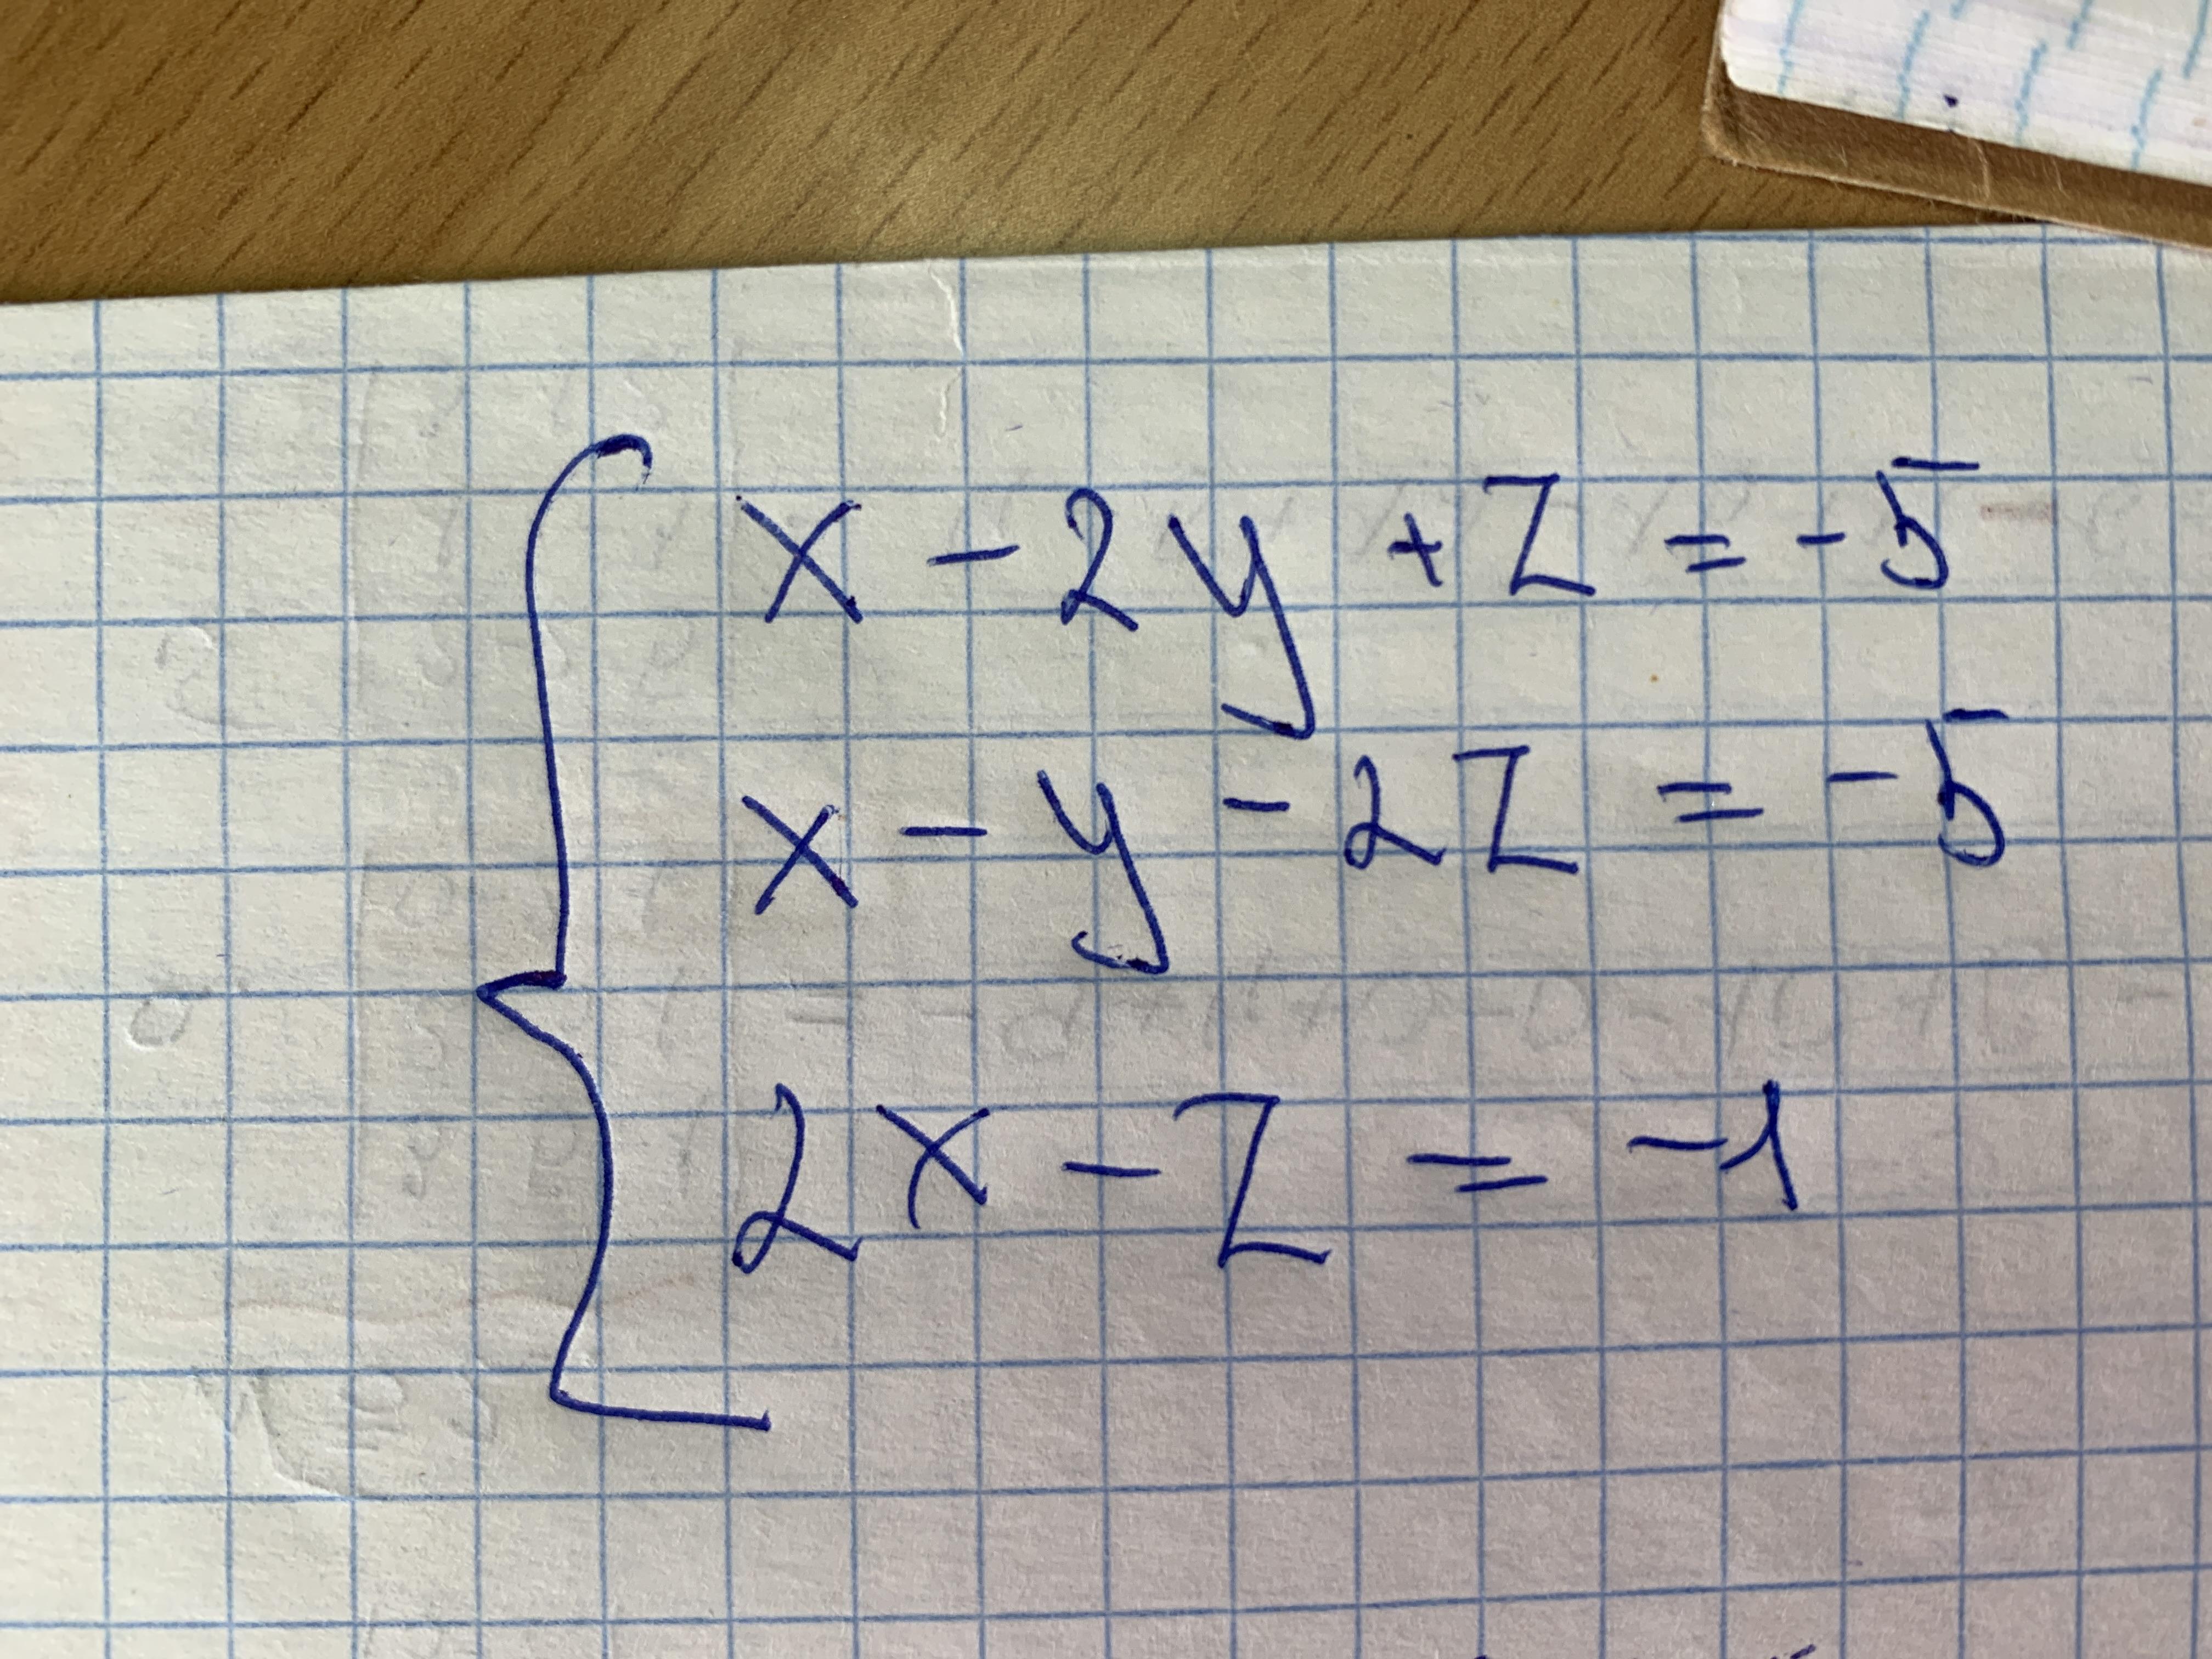 x - 2y + z = -5
x - y - 2z = -5
2x - z = -1